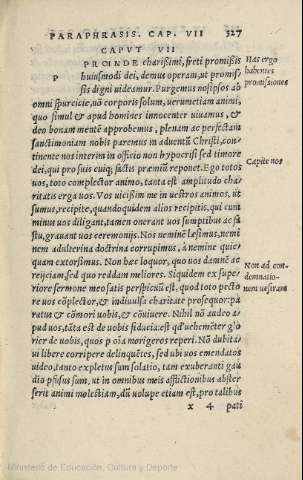 PARAPHRASIS. CAP. VII 327
CAPVT VII
PROINDE charißimi, freti promißis
P huiusmodi dei, demus operam, ut promis/
sis digni uideamur. Purgemus nosipsos ab
omni spurcicie, nō corporis solum, uerumetiam animi,
quo simul & apud homines innocenter uiuamus, &
deo bonam mentē approbemus, plenam ac perfectam
sanctimoniam nobis paremus in aduentū Christi, con/
tinente nos interim in officio non hypocrisi sed timore
dei, qui pro suis cuiq; factis præmiū reponet. Ego totos
uos, toto complector animo, tanta est amplitudo cha/
ritatis erga uos. Vos uicißim me in uestros animos, ut
sumus, recipite, quandoquidem alios recipitis, qui cum
minus uos diligant, tamen onerant uos sumptibus ac fa
stu, grauant uos ceremonijs. Nos neminē læsimus, nemi
nem adulterina doctrina corrupimus, à nemine quic/
quam extorsimus. Non hæc loquor, quo uos damnē ac
reijciam, sed quo reddam meliores. Siquidem ex supe/
riore sermone meo satis perspicuū est, quod toto pecto
re uos cōplector, & indiuulsa charitate prosequor: pa
ratus & cōmori uobis, & cōuiuere. Nihil nō audeo a/
pud uos, tāta est de uobis fiducia: est qd' uehemēter glo
rier de uobis, quos p oīa morigeros reperi. Nō dubita/
ui libere corripere delinquētes, sed ubi uos emendatos
uideo, tanto expletus sum solatio, tam exuberanti gau
dio pfusus sum, ut in omnibus meis afflictionibus abster
serit animi molestiam, dū uolupe etiam est, pro talibus
x 4 pati
Has ergo
habentes
promissiones
Capite nos
Non ad con-
demnatio-
nem uestram
Ministerio de Educación, Cultura y Deporte